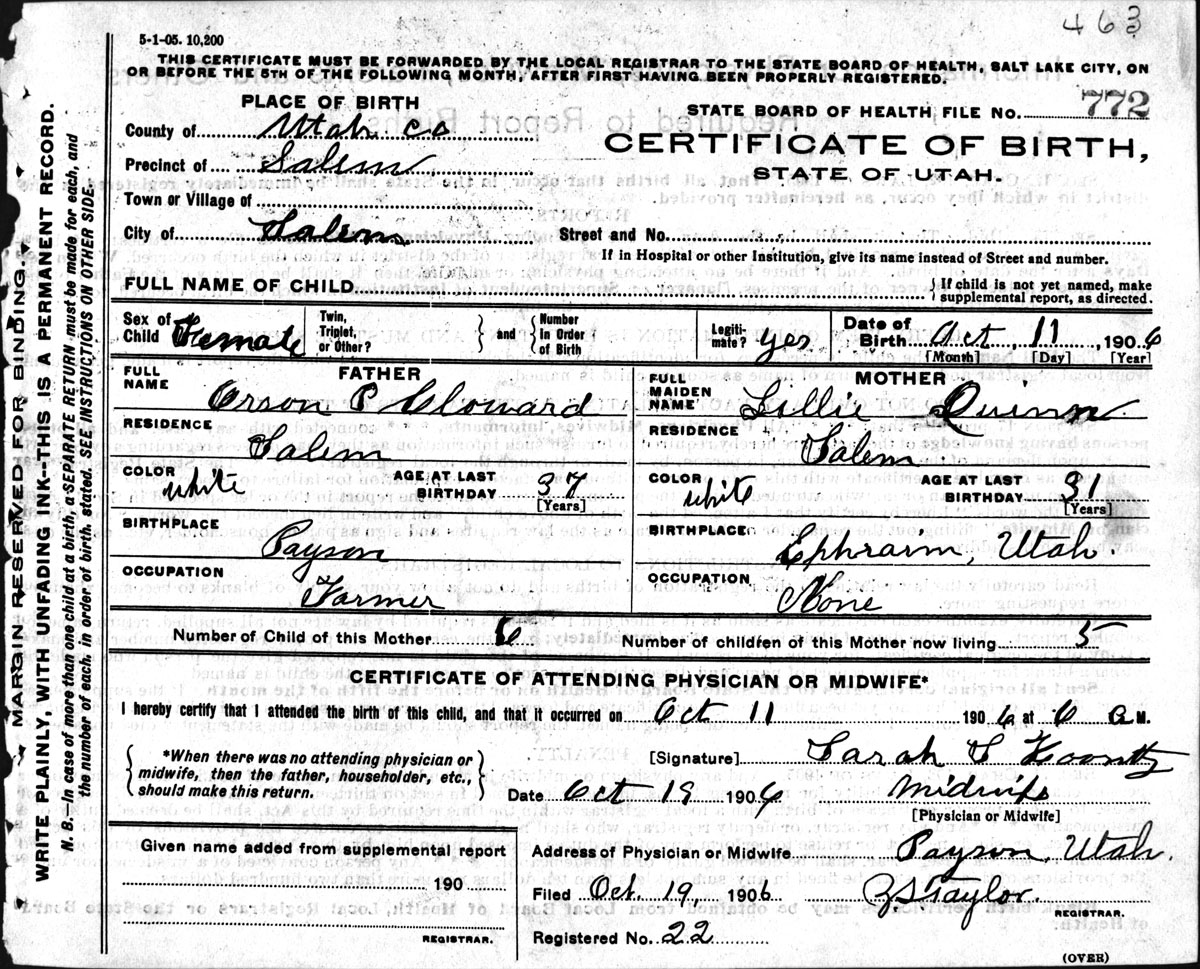 463
5-1-05. 10,200
THIS CERTIFICATE MUST BE FORWARDED BY THE LOCAL REGISTRAR TO THE STATE BOARD OF HEALTH, SALT LAKE CITY, ON
OR BEFORE THE 5TH OF THE FOLLOWING MONTH, AFTER FIRST HAVING BEEN PROPERLY REGISTERED.
MARGIN RESERVED FOR BINDING.
WRITE PLAINLY, WITH UNFADING INK--THIS IS A PERMANENT RECORD.
N. B.--In case of more than one child at a birth, a SEPARATE RETURN must be made for each, and
the number of each, in order of birth, stated. SEE INSTRUCTIONS ON OTHER SIDE.
PLACE OF BIRTH
County of Utah co
Precinct of Salem
Town or Village of
City of Salem
STATE BOARD OF HEALTH FILE No. 772
CERTIFICATE OF BIRTH,
STATE OF UTAH.
Street and No.
If in Hospital or other Institution, give its name instead of Street and number.
FULL NAME OF CHILD
If child is not yet named, make
supplemental report, as directed.
Sex of Child Female
Twin, Triplet, or Other?
and
Number in Order of Birth
Legitimate? yes
Date of Birth Oct 11 1906
[Month] [Day] [Year]
FATHER
FULL NAME Orson P Cloward
RESIDENCE Salem
COLOR white AGE AT LAST BIRTHDAY 37 [Years]
BIRTHPLACE Payson
OCCUPATION Farmer
MOTHER
FULL MAIDEN NAME Lillie Quinn
RESIDENCE Salem
COLOR white AGE AT LAST BIRTHDAY 31 [Years]
BIRTHPLACE Ephraim, Utah.
OCCUPATION None
Number of Child of this Mother 6 Number of children of this Mother now living 5
CERTIFICATE OF ATTENDING PHYSICIAN OR MIDWIFE*
I hereby certify that I attended the birth of this child, and that it occurred on Oct 11 1906 at 6 a M.
*When there was no attending physician or
midwife, then the father, householder, etc.,
should make this return.
[Signature] Sarah S Koontz
Date Oct 19 1906 Midwife
[Physician or Midwife]
Given name added from supplemental report
190
REGISTRAR.
Address of Physician or Midwife Payson, Utah.
Filed Oct. 19, 1906 Z S Taylor.
REGISTRAR.
Registered No. 22
(OVER)